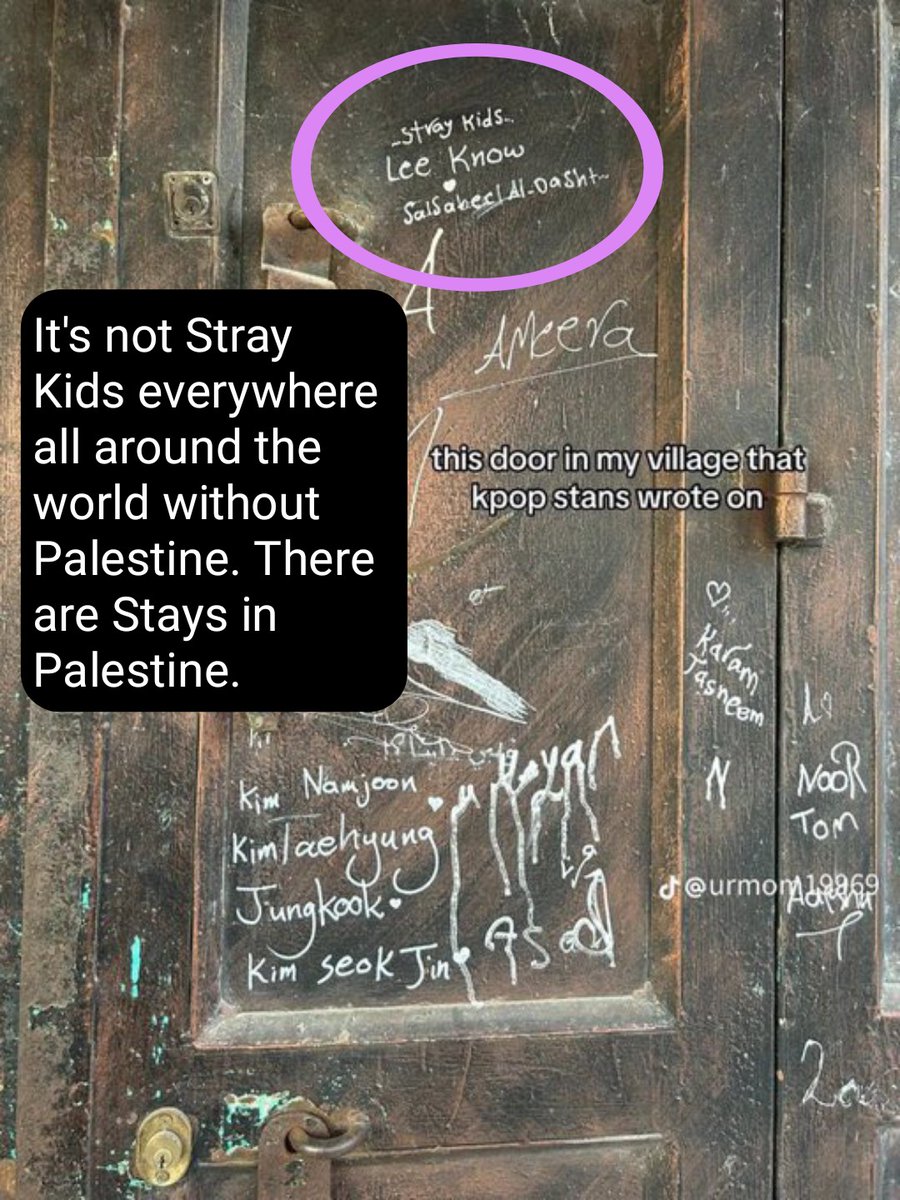 ~Stray Kids~
Lee Know
AMeera
It's not Stray
Kids everywhere
all around the
world without
Palestine. There
are Stays in
Palestine.
this door in my village that
kpop stans wrote on
Karam
Tasneem
N
NooR
Tom
Kim Namjoon
Kim Taehyung
Jungkook
Kim seok Jin
Asad
@urmom19969